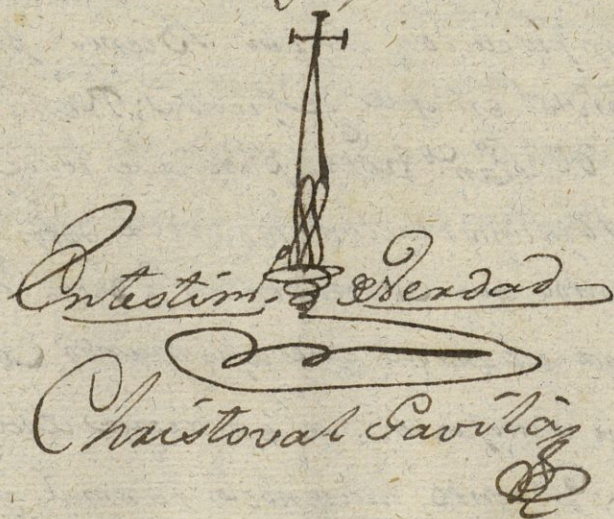 Entestim.º deVerdad
Christoval Gavilán